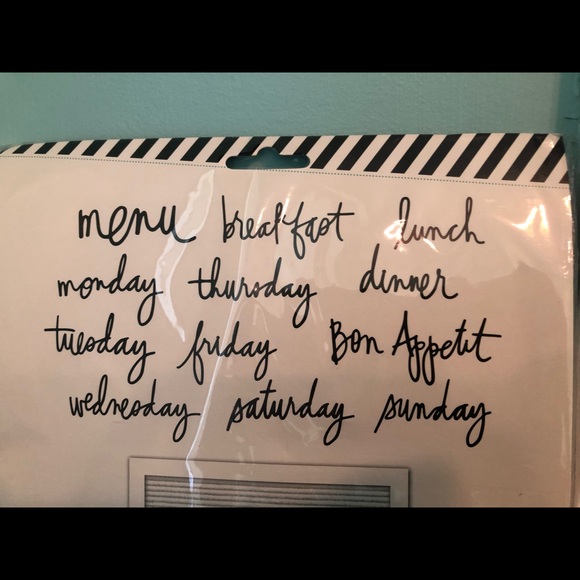 menu breakfast lunch
monday thursday dinner
tuesday friday Bon Appetit
wednesday saturday sunday